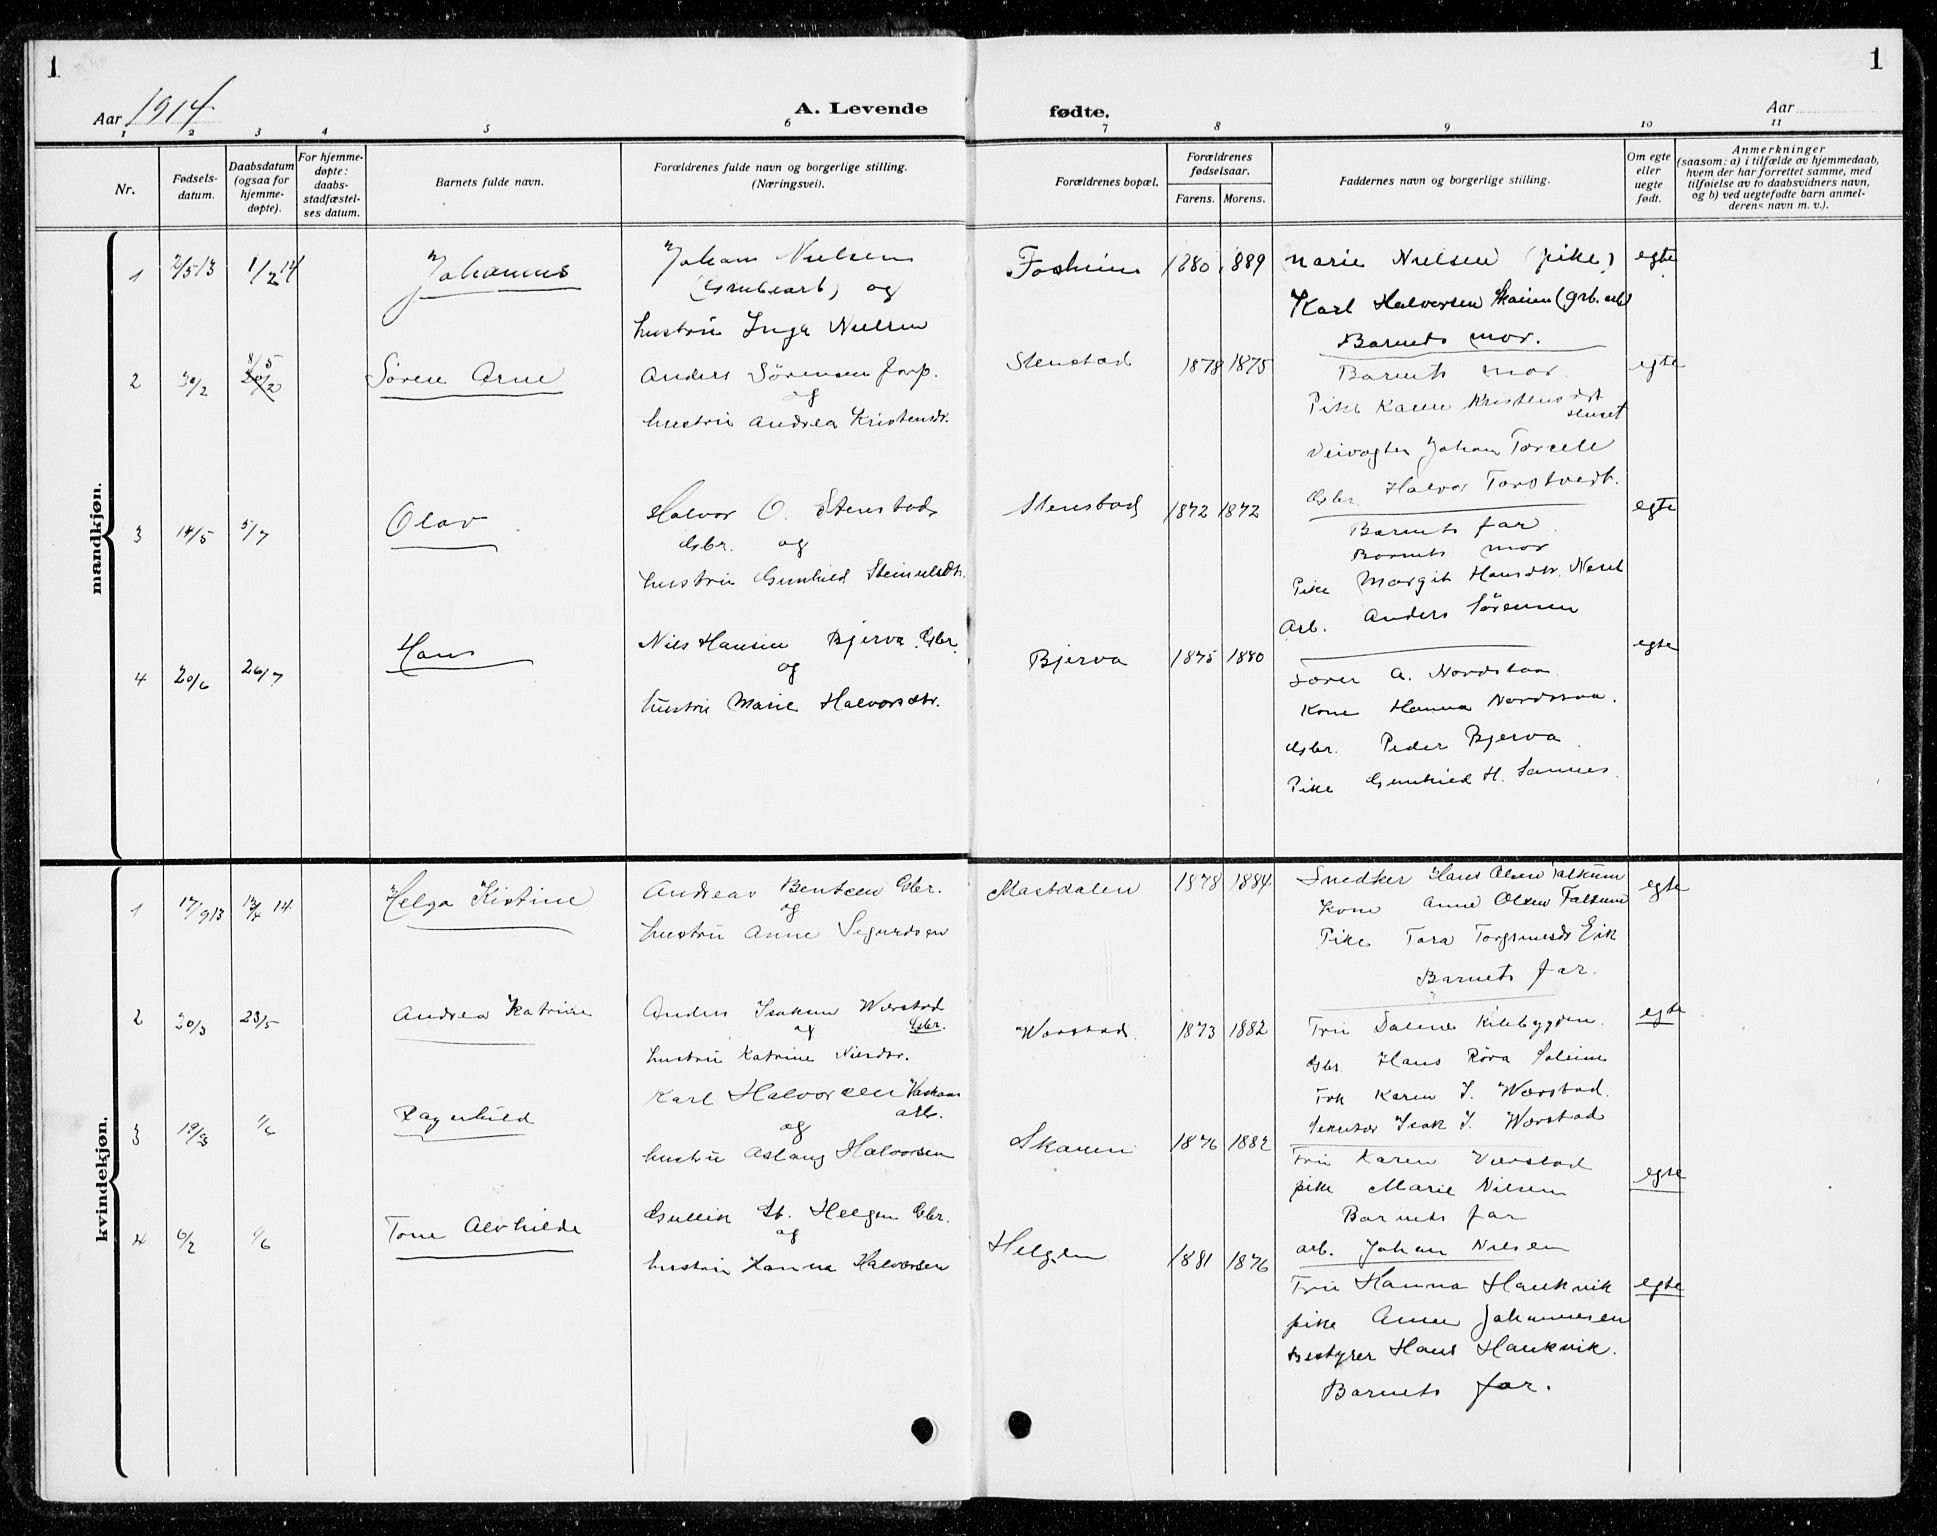 1
1
Aar 1914
A. Levende
fødte.
Aar
1 2 3 4 5 6 7 8 9 10 11
Nr.
Fødsels-
datum.
Daabsdatum
(ogsaa for
hjemme-
døpte).
For hjemme-
døpte:
daabs-
stadfæstel-
ses datum.
Barnets fulde navn.
Forældrenes fulde navn og borgerlige stilling.
(Næringsvei).
Forældrenes bopæl.
Forældrenes
fødselsaar.
Farens. Morens.
Faddernes navn og borgerlige stilling.
Om egte
eller
uegte
født.
Anmerkninger
(saasom: a) i tilfælde av hjemmedaab,
hvem der har forrettet samme, med
tilføielse av to daabsvidners navn,
og b) ved uegtefødte barn anmel-
derens navn m. v.).
mandkjøn.
1 2/5 13 1/2 14 Johannes
Johan Nielsen
(Grubearb) og
hustru Inga Nielsen
Fosheim 1880 1889
Marie Nielsen (pike)
Karl Halvorsen Skauen (grb. arb)
Barnets mor.
egte
2 30/2 8/5 Søren Arne
Anders Sørensen
og
hustru Andrea Kristensdr.
Stenstad 1878 1875
Barnets mor.
Pike Karen Kristensdat
Veivogter Johan
Gbr. Halvor Torstvedt.
egte
3 14/5 5/7 Olav
Halvor O. Stenstad
Gbr. og
hustru Gunhild
Stenstad 1872 1872
Barnets far.
Barnets mor
Pike Margit Hansdtr.
Arb. Anders Sørensen
egte
4 20/6 26/7 Hans
Nils Hansen Bjerva Gbr.
og
hustru Marie Halvorsdtr.
Bjerva 1875 1880
Søren A. Nordstaa
Kone Hanna Nordstaa.
Gbr. Peder Bjerva
Pike Gunhild H.
egte
kvindekjøn.
1 17/9 13 14 Helga Kistine
Andreas Bentsen Gbr.
og
hustru Anne Sigurdsen
Mastdalen 1878 1884
Snedker Hans Olsen Falkum
Kone Anne Olsen Falkum
Pike Tora Eik
Barnets far.
egte
2 30/3 23/5 Andrea Katrine
Anders Isaksen Wærstad
og Gbr.
hustru Katrine Nilsdtr.
Wærstad. 1873 1882
Fru Dalene Kilebygden.
Gbr. Hans Røra Soleim
Frk Karen I. Wærstad.
Isak I. Wærstad
egte
3 19/3 1/6 Ragnhild
Karl Halvorsen
og arb.
hustru Aslaug Halvorsen
Skauen 1876 1882
Fru Karen Værstad
pike Marie Nilsen
Barnets far
arb. Johan Nilsen
egte
4 6/2 1/6 Tone Alvhilde
Gullik St. Helgen Gbr.
og
hustru Hanna Halvorsen
Helgen 1881 1876
Fru Hanna Haukvik
pike Anne Johannesen
Bestyrer Hans Haukvik.
Barnets far.
egte